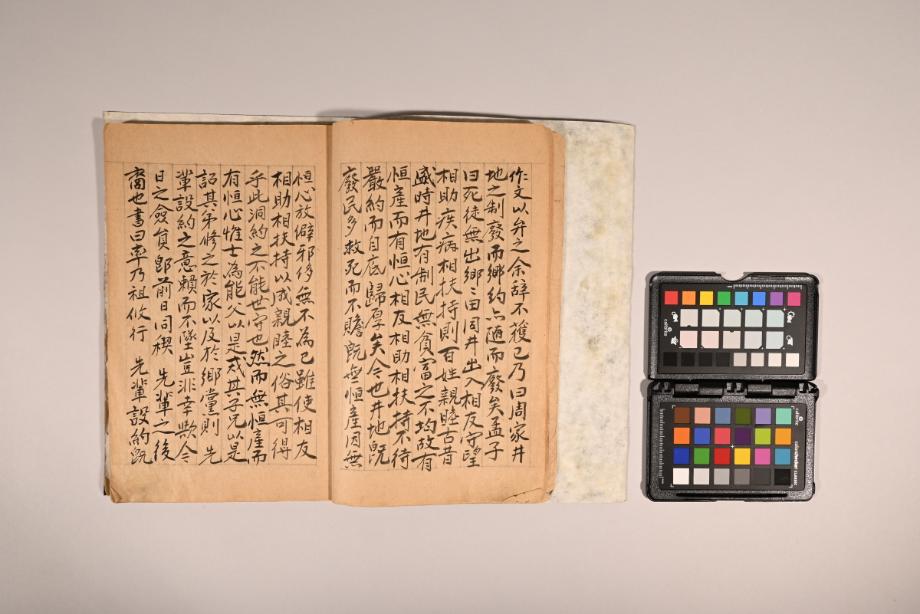 作文以弁之余辞不獲已乃曰周家井
地之制廢而鄉約亦随而廢矣孟子
曰死徒無出鄉鄉田同井出入相友守望
相助疾病相扶持則百姓親睦古昔
盛時井地有制民無貧富之不均故有
恒産而有恒心相友相助相扶持不待
嚴約而自底歸厚矣今也井地既
廢民多救死而不贍既無恒産因無
恒心放僻邪侈無不為已雖使相友
相助相扶持以成親睦之俗其可得
乎此洞約之不能世守也然而無恒産而
有恒心惟士為能父以是戒其子兄以是
詔其弟修之於家以及於鄉黨則 先
輩設約之意賴而不墜豈非幸歟今
日之僉員即前日同稧 先輩之後
裔也書曰率乃祖攸行 先輩設約既